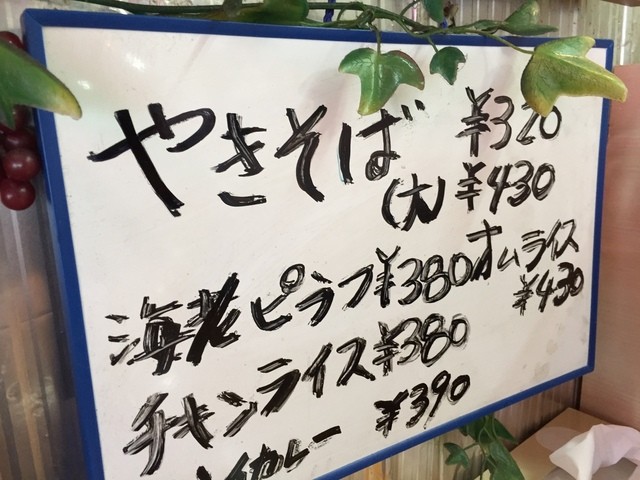 やきそば ¥320
(大) ¥430
海老ピラフ ¥380
オムライス
¥430
チキンライス ¥380
カレー ¥390